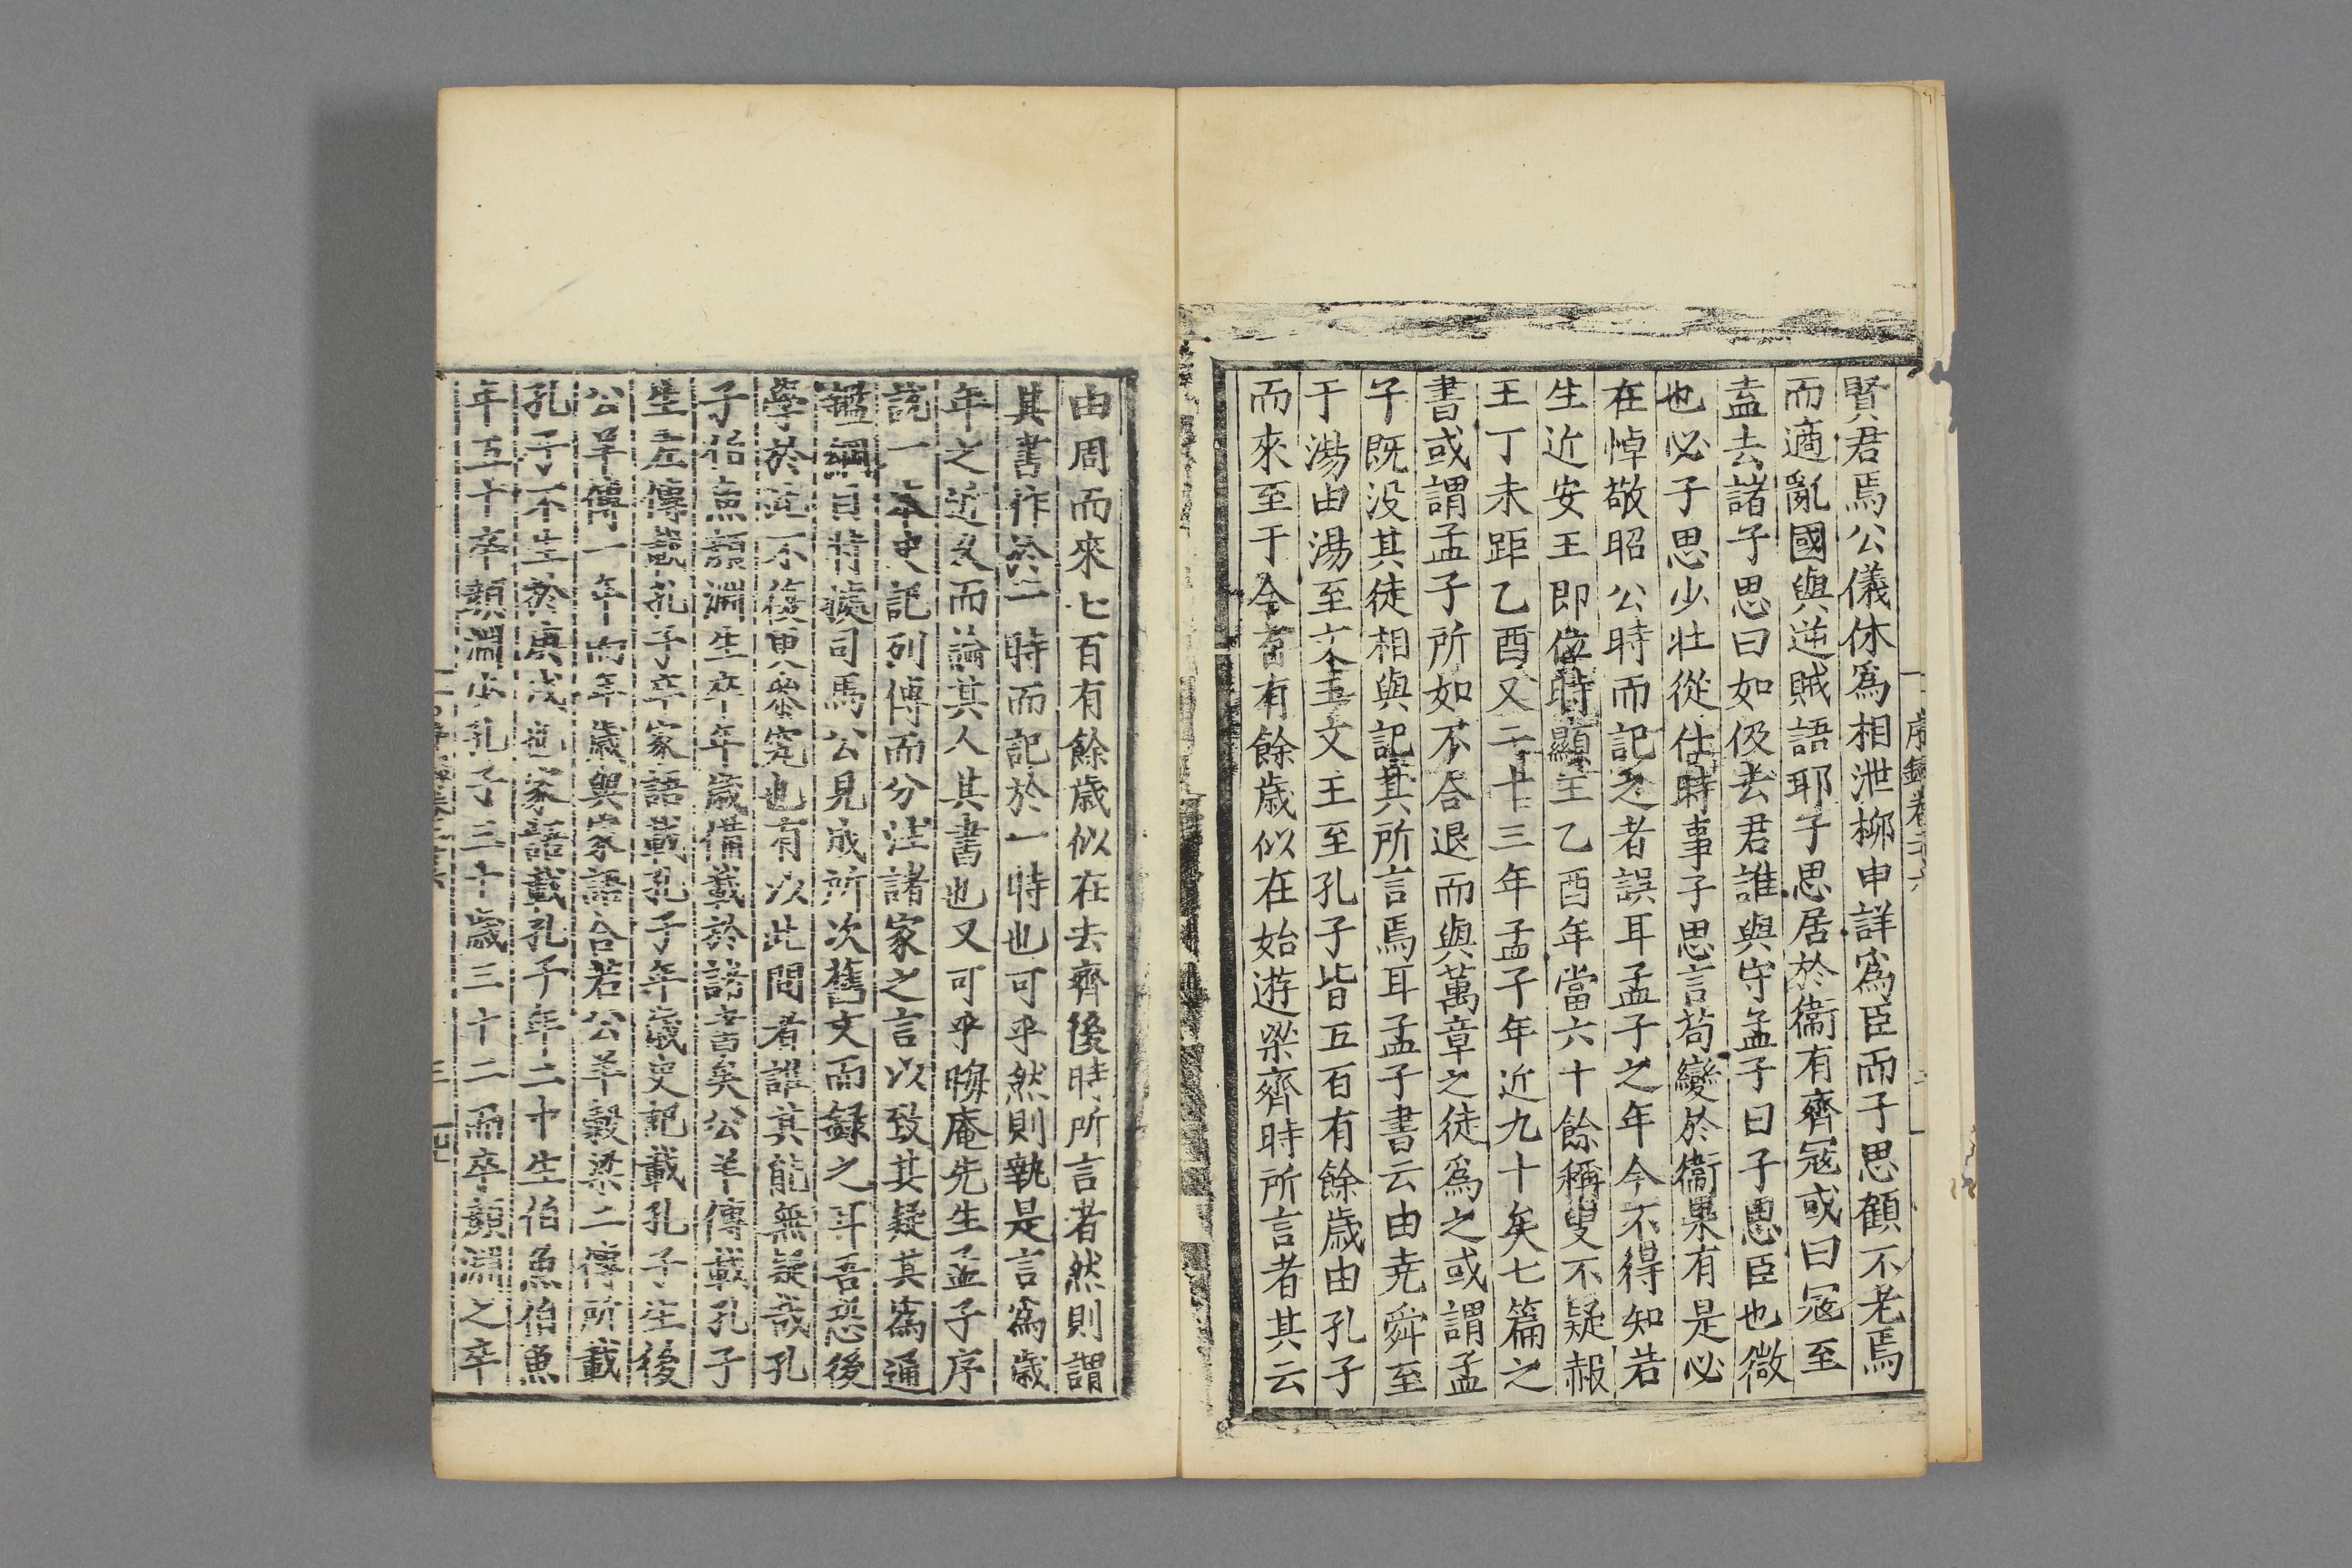 賢君焉公儀休爲相泄柳申詳爲臣而子思顧不老焉
而適亂國與逆賊語耶子思居於衞有齊冦或曰冦至
盍去諸子思曰如伋去君誰與守孟子曰子思臣也微
也必子思少壯從仕時事子思言苟變於衞果有是必
在悼敬昭公時而記之者誤耳孟子之年今不得知若
生近安王即位時顯王乙酉年當六十餘稱叟不疑赧
王丁未距乙酉又二十三年孟子年近九十矣七篇之
書或謂孟子所如不合退而與萬章之徒爲之或謂孟
子既没其徒相與記其所言焉耳孟子書云由堯舜至
于湯由湯至文王文王至孔子皆五百有餘歳由孔子
而來至于今百有餘歳似在始遊梁齊時所言者其云
由周而來七百有餘歳似在去齊後時所言者然則謂
其書作於一時而記於一時也可乎然則孰是言爲歳
年之近久而論其人其書也又可乎晦庵先生孟子序
說一本史記列傳而分注諸家之言以致其疑其爲通
鑑綱目特據司馬公見成所次舊文而録之耳吾恐後
學於此不復更叅究也有以此問者誰其能無疑哉孔
子伯魚顔淵生卒年歳備載於諸書矣公羊傳載孔子
生左傳載孔子卒家語載孔子年歳史記載孔子生後
公羊傳一年而年歳與家語合若公羊糓梁二傳所載
孔子不生於庚戌也家語載孔子年二十生伯魚伯魚
年五十卒顔淵少孔子三十歳三十二而卒顔淵之卒